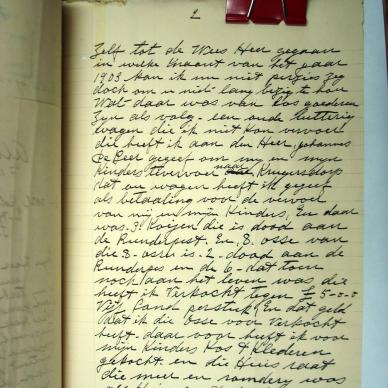 2
Zelf tot de Wees Heer gegaan
in welke maant van het jaar
1903 kan ik nu niet zeg
doch om u niet lang bezig te hou
Wat daar was van Los goederen
Zyn als volg - een oude
wagen die ik niet kon vervoer
die heeft ik aan den Heer Johannes
de Beer gegeef om my en myn
Kinders te vervoer naar Krugersdorp
dat ou wagen heeft ik gegeef
als betaaling voor de vervoer
van my en myn Kinders, En daar
was 3 Koeijen die is dood aan
de Runderpest. En 8 osse van
die 8 osse is 2 dood aan de
Runderpes en de 6 dat toen
noch aan het leven was die
heeft ik Verkocht tegen £ 5-0-0
Vyf Pond perstuk En dat geld
Wat ik die Osse voor Verkocht
heeft daar voor heeft ik voor
myn Kinders Kos & Klederen
gekocht. en die Huis raat
die meul en